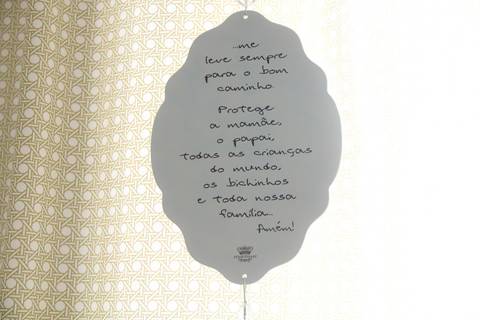 ...me
leve sempre
para o bom
caminho.
Protege
a mamãe,
o papai,
todas as crianças
do mundo,
os bichinhos
e toda nossa
família...
Amém!